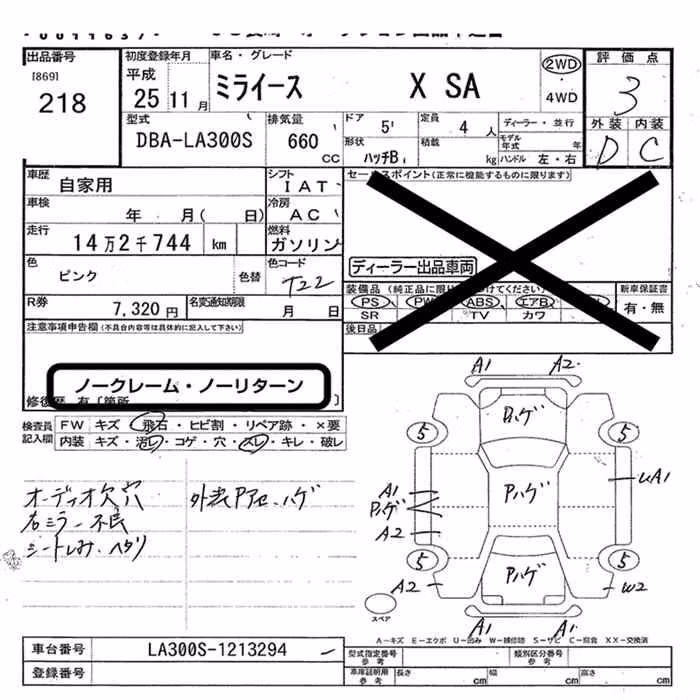 出品番号
[869]
218
初度登録年月
平成
25 11 月
車名・グレード
ミライース X SA
2WD
4WD
評価点
3
外装 内装
D C
型式
DBA-LA300S
排気量
660
CC
ドア
5
定員
4 人
形状
ハッチB
積載
kg
ディーラー・並行
モデル年式 年
ハンドル 左・右
車歴
自家用
シフト
IAT
車検
年 月( 日)
冷房
AC
走行
14万2千744 km
燃料
ガソリン
色
ピンク
色替
色コード
T22
R券
7,320円
名変通知期限
月 日
セールスポイント(正常に機能するものに限ります)
ディーラー出品車両
PS PW ABS エアB
SR TV カワ
新車保証書
有・無
後日品
注意事項申告欄(不具合内容等は具体的に記入して下さい)
ノークレーム・ノーリターン
修復歴 有〔箇所
検査員記入欄
FW キズ・飛石・ヒビ割・リペア跡・×要
内装 キズ・汚レ・コゲ・穴・スレ・キレ・破レ
オーディオ欠穴
右ミラー不良
シートしみ、ヘタリ
外装Pアセ、ハゲ
A1 A2
Pハゲ
5 5
A1
Pハゲ
A2
Pハゲ
UA1
5 5
A2
Pハゲ
W2
A1 A1
スペア
A-キズ E-エクボ U-凹み W-補修跡 S-サビ C-腐食 XX-交換済
車台番号
LA300S-1213294
登録番号
型式指定番号
参考
類別区分番号
参考
車庫証明用
参考
長さ cm
幅 cm
高さ cm